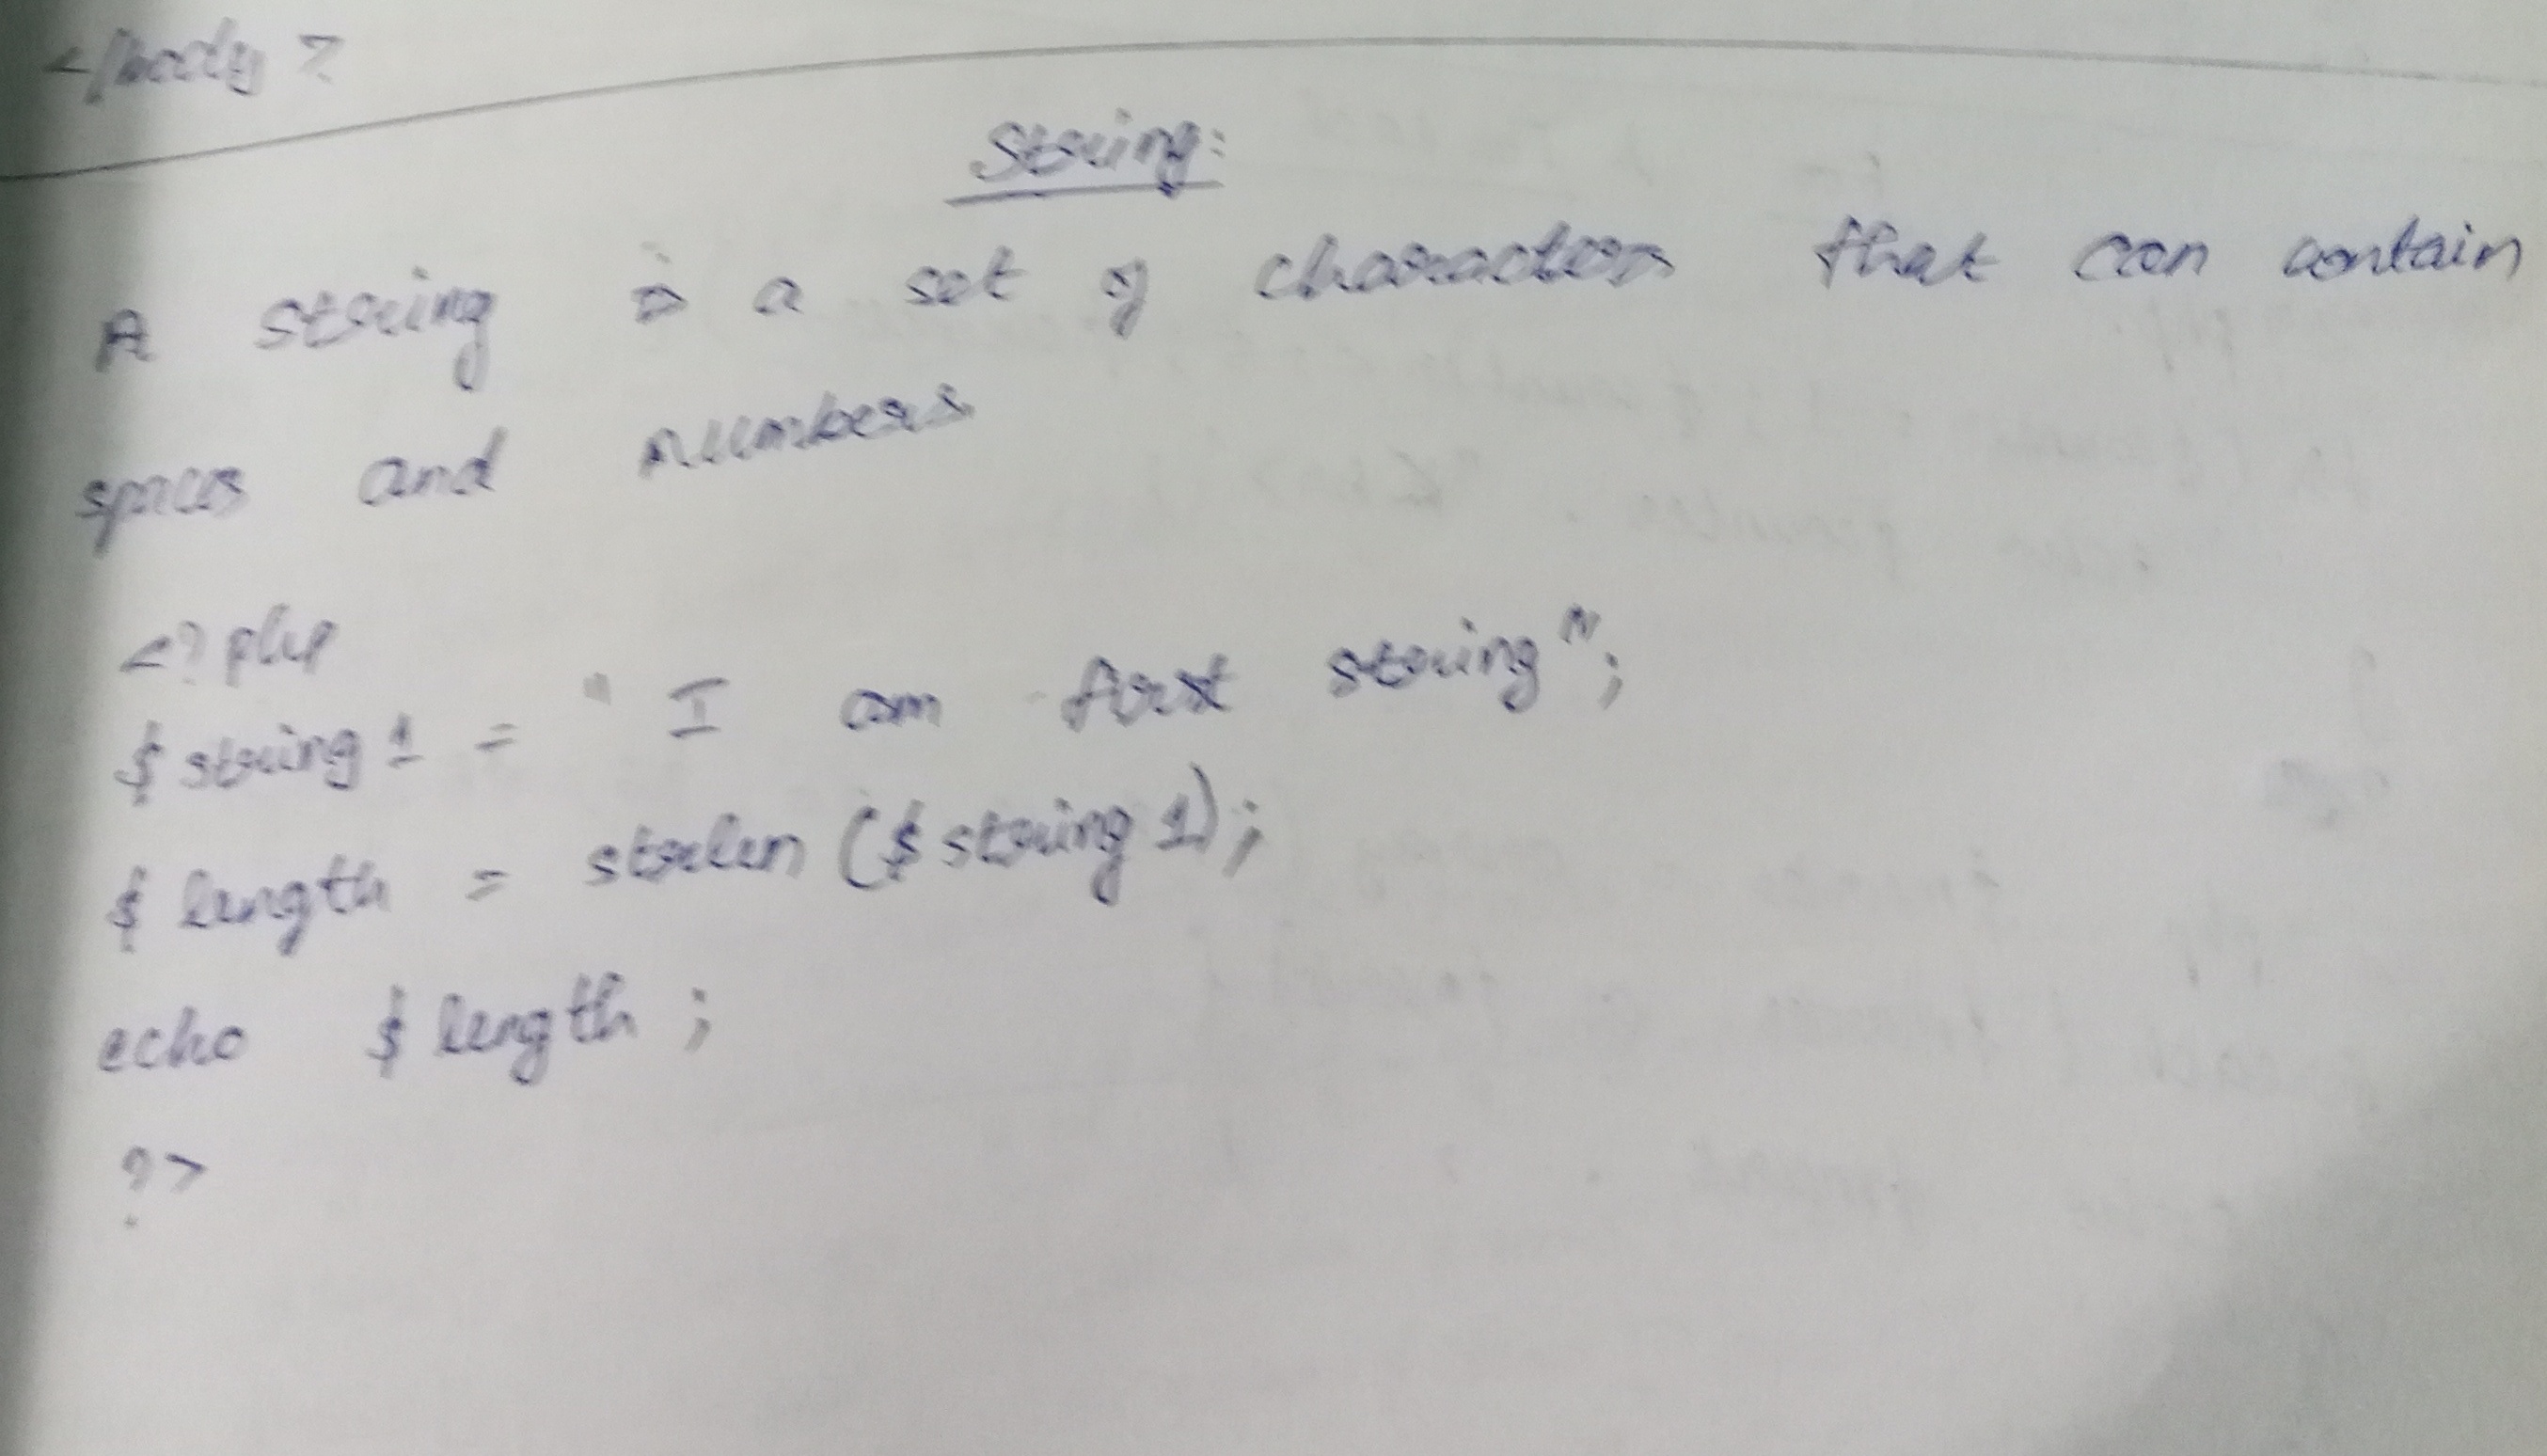 </body>
String:
A string is a set of characters that can contain
spaces and numbers
<?php
$string1 = "I am first string";
$length = strlen($string1);
echo $length;
?>